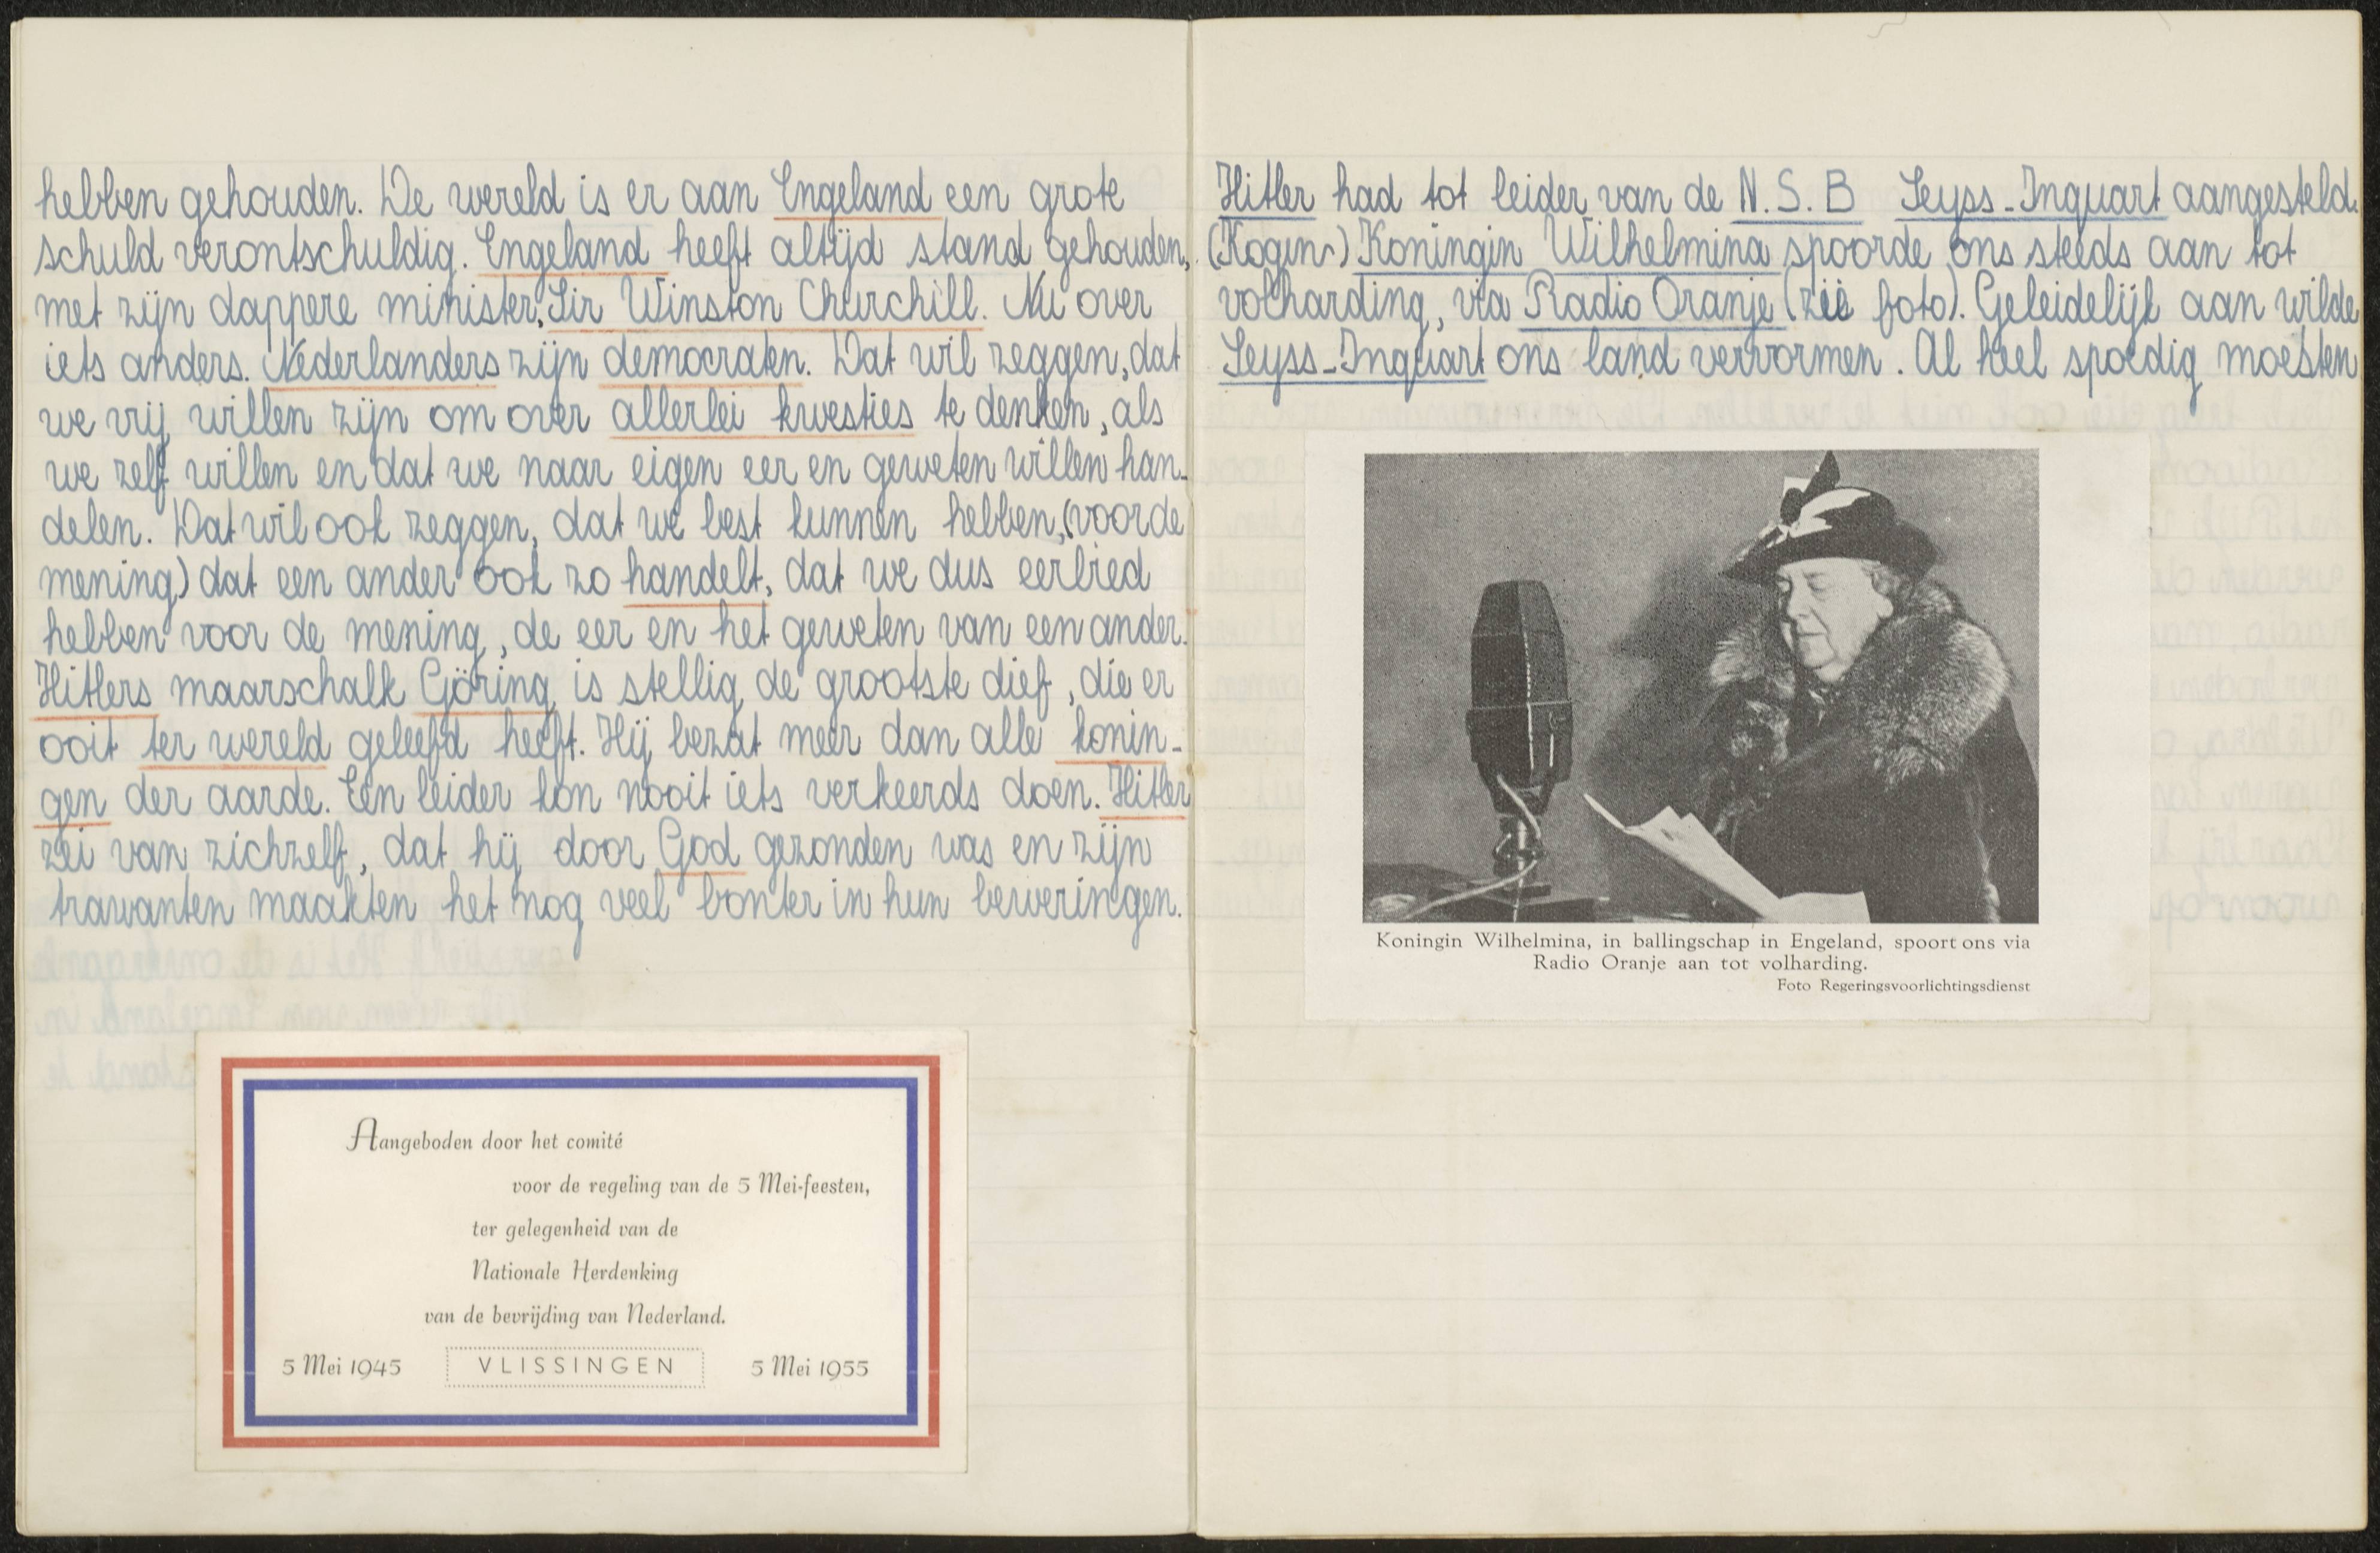 hebben gehouden. De wereld is er aan Engeland een grote
schuld verontschuldig. Engeland heeft altijd stand gehouden,
met zijn dappere minister, Sir Winston Churchill. Nu over
iets anders. Nederlanders zijn democraten. Dat wil zeggen, dat
we vrij willen zijn om over allerlei kwesties te denken, als
we zelf willen en dat we naar eigen eer en geweten willen han-
delen. Dat wil ook zeggen, dat we best kunnen hebben, (voor de
mening) dat een ander ook zo handelt, dat we dus eerbied
hebben voor de mening, de eer en het geweten van een ander.
Hitlers maarschalk Göring is stellig de grootste dief, die er
ooit ter wereld geleefd heeft. Hij bezat meer dan alle konin-
gen der aarde. Een leider kon nooit iets verkeerds doen. Hitler
zei van zichzelf, dat hij door God gezonden was en zijn
trawanten maakten het nog veel bonter in hun beweringen.
Aangeboden door het comité
voor de regeling van de 5 Mei-feesten,
ter gelegenheid van de
Nationale Herdenking
van de bevrijding van Nederland.
5 Mei 1945 VLISSINGEN 5 Mei 1955
Hitler had tot leider van de N.S.B Seyss-Inquart aangesteld.
(Kogin) Koningin Wilhelmina spoorde ons steeds aan tot
volharding, via Radio Oranje (zie foto). Geleidelijk aan wilde
Seyss-Inquart ons land vervormen. Al heel spoedig moesten
Koningin Wilhelmina, in ballingschap in Engeland, spoort ons via
Radio Oranje aan tot volharding.
Foto Regeringsvoorlichtingsdienst